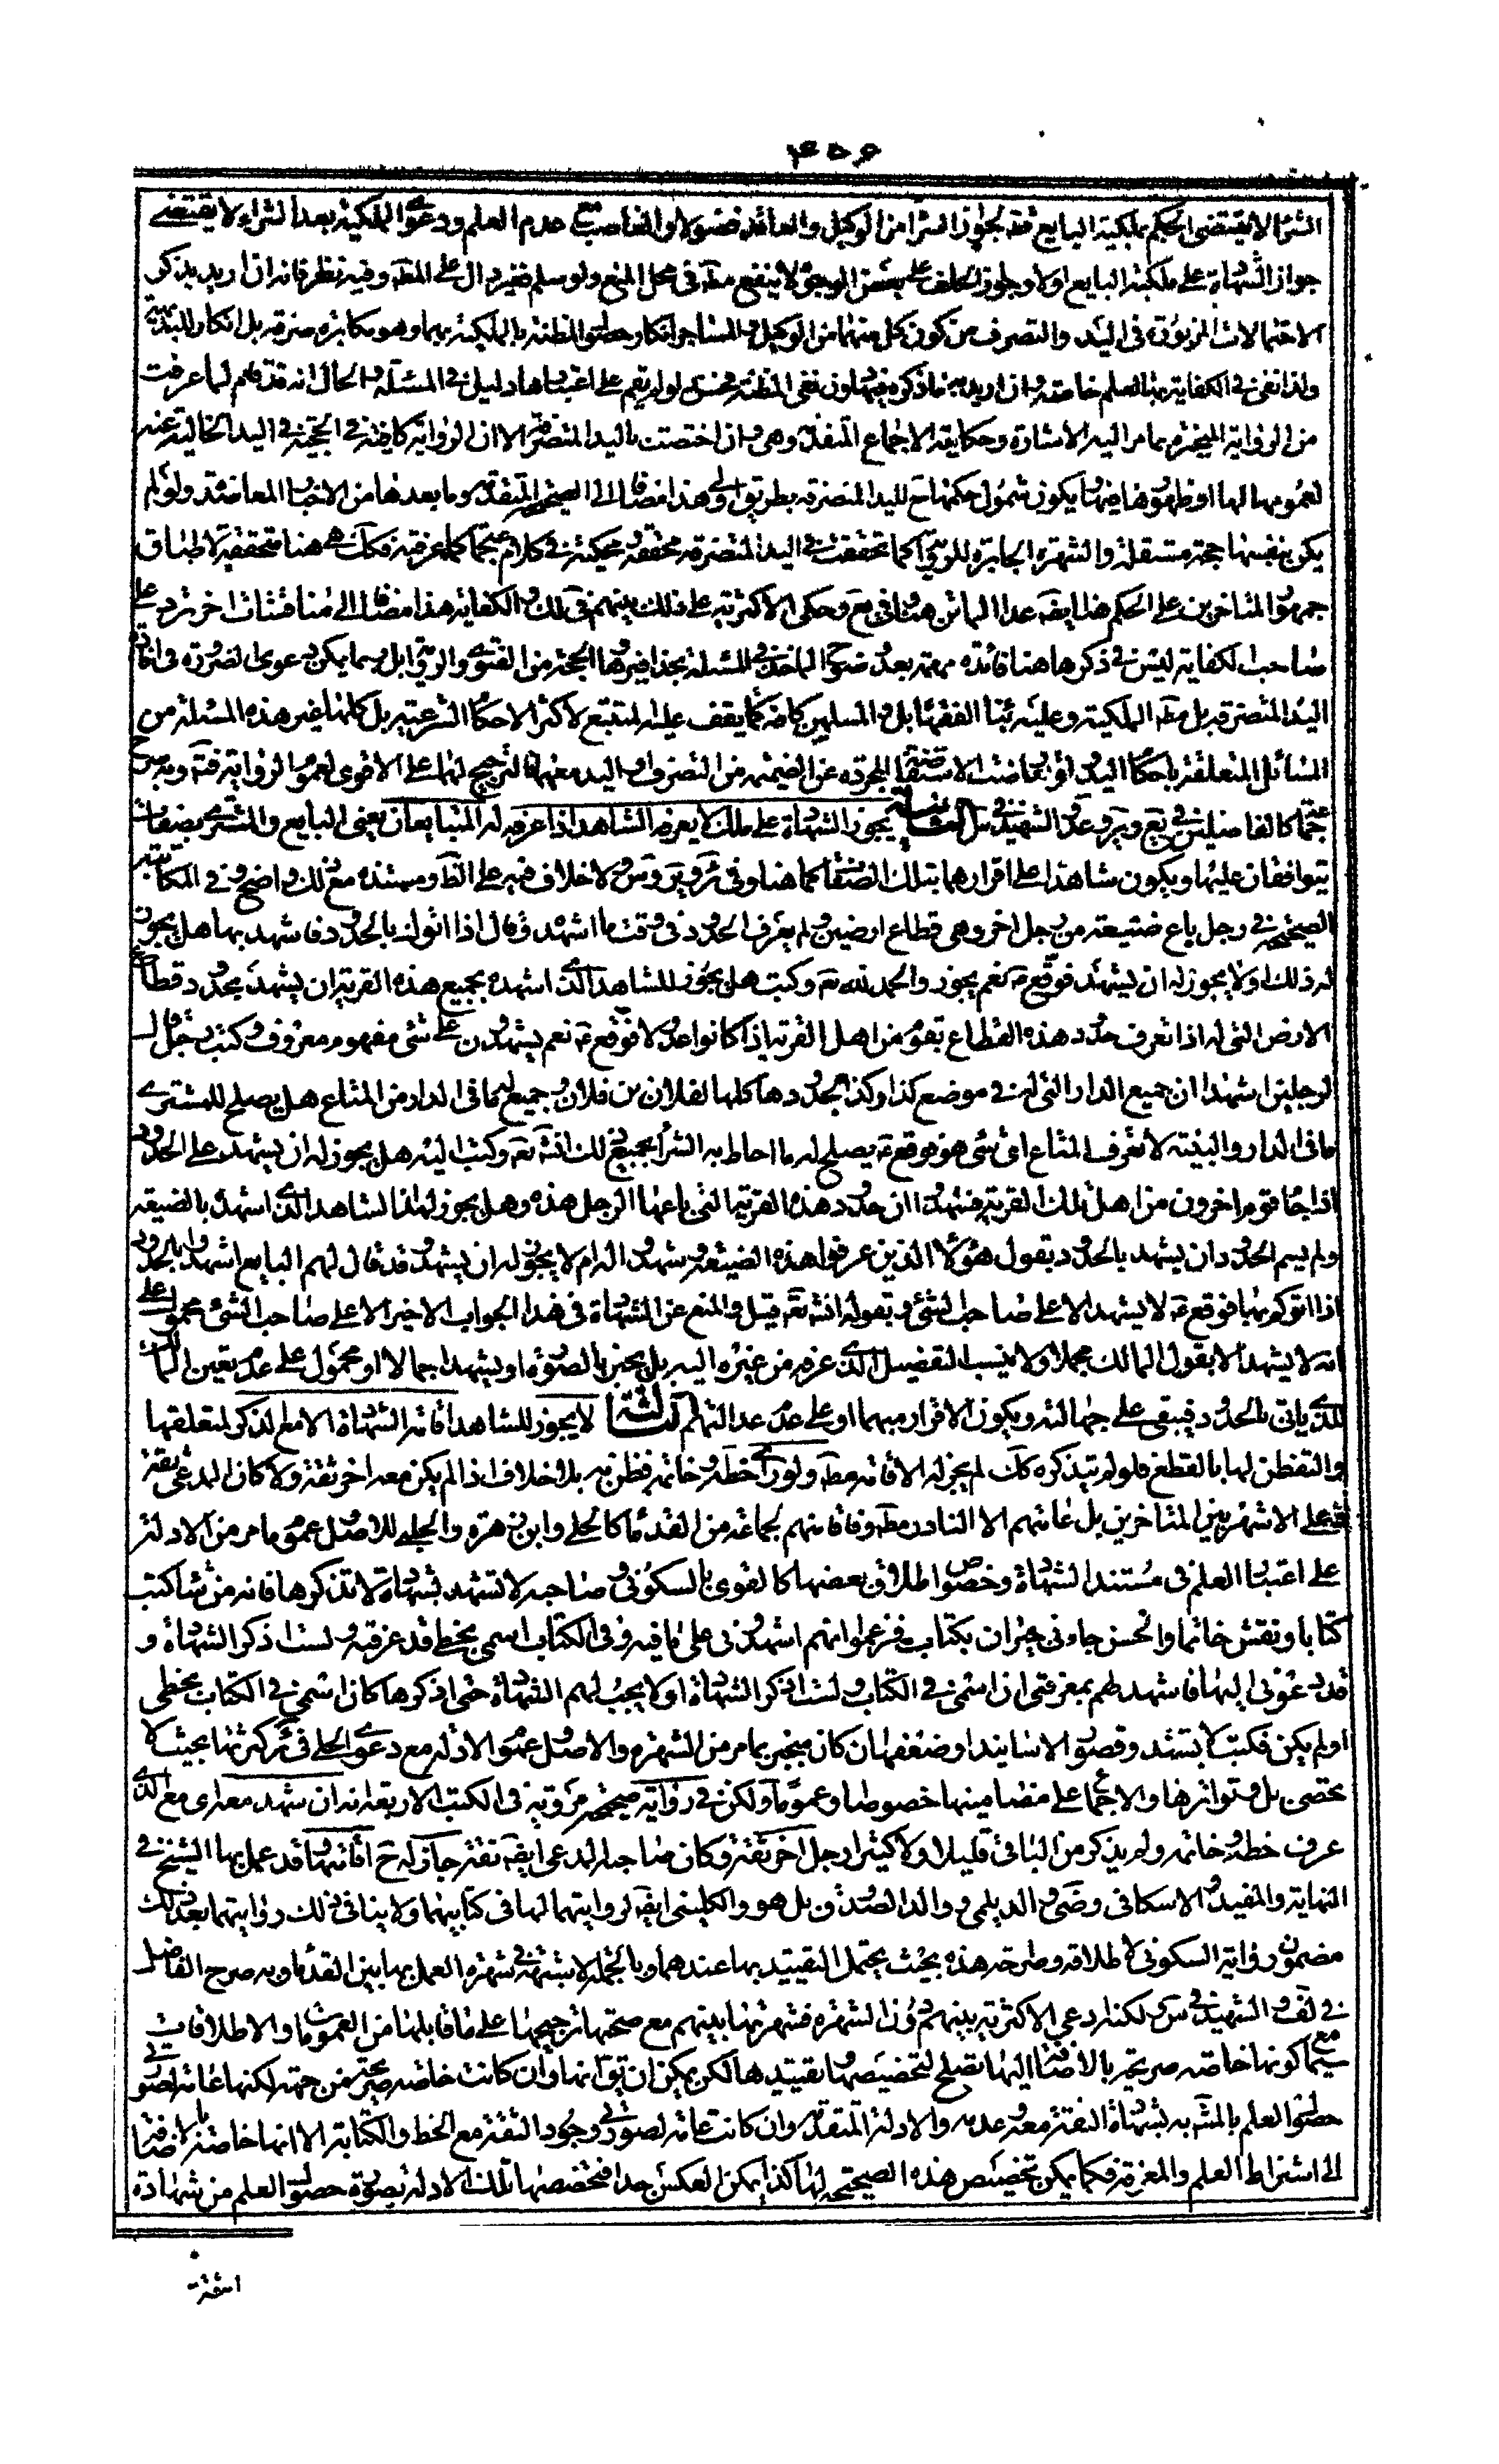 ۴۵۶
الشراء لا يقتضى الحكم بملكية البايع فقد يجوز الشراء من الوكيل والعاقد فضولا والغاصب مع عدم العلم ودعوى الملكية بعد الشراء لا يقتضى
جواز الشهادة على ملكية البايع اولا وجواز الحلف على بعض الوجوه لا ينفع مطه فى محل المنع ولو سلم فغير دال على المطه وفيه نظر فانه ان اريد بذكر
الاحتمالات المزبورة فى اليد والتصرف من كون كل منهما من الوكيل والمستاجر انكار حصول المظنة بالملكية بهما وهو مكابرة صرفة بل انكار للبديهة
ولذا نفى فى الكفاية عنها العلم خاصة وان اريد به ما ذكره فيها دون نفى المظنة فحسن لو لم يقم على اعتبارها دليل فى المسئلة والحال انه قد قام لما عرفت
من الرواية المنجبرة بما مر اليه الاشارة وحكاية الاجماع المتقدمة وهى وان اختصت باليد المتصرفة الا ان الرواية كافية فى الحجية فى اليد الخالية عنه
لعمومها لها او ظهورها فيها يكون شمول حكمها ح لليد المتصرفة بطريق اولى وهذا مضافا الى الصحيحة المتقدمة وما بعدها من الاخبار المعاضدة ولو لم
يكن بنفسها حجة مستقلة والشهرة الجابرة للرواية كما تحققت فى اليد المتصرفة محققة ومحكية فى كلام جماعة كما عرفته فكك هى هنا متحققة لاطباق
جمهور المتاخرين على الحكم هنا ايضه عدا الماتن هنا وفى يع وحكى الاكثرية على ذلك بينهم فى لك والكفاية هذا مضافا الى مناقشات اخر ترد على
صاحب الكفاية ليس فى ذكرها هنا فائدة مهمة بعد وضوح الماخذ فى المسئلة بحذافيرها والحجة من الفتوى والرواية بل ربما يمكن دعوى الضرورة فى افادة
اليد المتصرفة بل مطه الملكية وعليه بناء الفقهاء بل والمسلمين كافة كما يقف عليه المتتبع لاكثر الاحكام الشرعية بل كلها غير هذه المسئلة من
المسائل المتعلقة باحكام اليد ولو تعارضت الاستفاضة المجردة عن الضميمة من التصرف او اليد معها فالترجيح لها على الاقوى لعموم الرواية فته وبه صرح
جماعة كالفاضلين فى يع وير وعد والشهيد فى س الثانية يجوز الشهادة على ملك لا يعرفه الشاهد اذا عرفه له المتبايعان يعنى البايع والمشترى بصفات
يتوافقان عليها ويكون شاهدا على اقرارهما بتلك الصفات كما هنا وفى ئر وير وس لا خلاف فيه على الظ ومستنده مع ذلك واضح وفى المكاتبة
الصحيحة فى رجل باع ضيعته من رجل اخر وهى قطاع ارضين ولم يعرف الحدود فى وقت ما اشهده وقال اذا اتوك بالحدود فاشهد بها هل يجوز
له ذلك او لا يجوز له ان يشهد فوقع ع نعم يجوز والحمد لله ته وكتب هل يجوز للشاهد الذى اشهده بجميع هذه القرية ان يشهد بحدود قطاع
الارض التى له اذا تعرف حدود هذه القطاع بقوم من اهل القرية اذا كانوا عدولا فوقع ع نعم يشهدون على شئ مفهوم معروف وكتب رجل
لرجلين اشهدا ان جميع الدار التى له فى موضع كذا وكذا بحدودها كلها لفلان بن فلان وجميع ما فى الدار من المتاع هل يصلح للمشترى
ما فى الدار والبينة لا تعرف المتاع اى شئ هو فوقع ع يصلح له ما احاط به الشراء بجميع ذلك انشه ته وكتب اليه هل يجوز له ان يشهد على الحدود
اذا جاء قوم اخرون من اهل تلك القرية فشهدوا ان حدود هذه القرية التى باعها الرجل هذه وهل يجوز لهذا الشاهد الذى اشهده بالضيعة
ولم يسم الحدود ان يشهد بالحدود بقول هؤلاء الذين عرفوا هذه الضيعة وشهدوا له ام لا يجوز له ان يشهد وقد قال لهم البايع اشهدوا بالحدود
اذا اتوكم بها فوقع ع لا يشهد الا على صاحب الشئ وبقوله انشه ته قيل والمنع عن الشهادة فى هذا الجواب الاخير الا على صاحب الشئ محمول على
انه لا يشهد الا بقول المالك مجملا ولا ينسب التفصيل الذى عرفه من غيره اليه بل يخبر بالصورة او يشهد اجمالا او محمول على عدم تعين المالك
الذى ياتى بالحدود فيبقى على جهالته ويكون الاقرار مبهما او على عدم عدالتهم الثالثة لا يجوز للشاهد اقامة الشهادة الا مع الذكر لمتعلقها
والتفطن لها بالقطع فلو لم يتذكره كك لم يجز له الاقامة مطه ولو راى خطه وخاتمه فظن به بلا خلاف اذا لم يكن معه اخر ثقة ولا كان المدعى ثقة
فعلى الاشهر بين المتاخرين بل عامتهم الا النادر مطه وفاقا منهم لجماعة من القدماء كالحلى وابن زهرة والحلبى للاصل وعموم ما مر من الادلة
على اعتبار العلم فى مستند الشهادة وخصوص اطلاق بعضها كالقوى بالسكونى وصاحبه لا تشهد بشهادة لا تذكرها فانه من شاء كتب
كتابا ونقش خاتما والحسن جاءنى جيران بكتاب فزعموا انهم اشهدونى على ما فيه وفى الكتاب اسمى بخطى قد عرفته ولست اذكر الشهادة و
قد دعونى اليها فاشهد لهم بمعرفتى ان اسمى فى الكتاب ولست اذكر الشهادة او لا يجب لهم الشهادة حتى اذكرها كان اسمى فى الكتاب بخطى
او لم يكن فكتب لا تشهد وقصور الاسانيد او ضعفها ان كان منجبر بما مر من الشهرة والاصل وعموم الادلة مع دعوى الحلى فى ئر كثرتها بحيث لا
تحصى بل وتواترها والاجماع على مضامينها خصوصا وعموما ولكن فى رواية صحيحة مروية فى الكتب الاربعة انه ان شهد معه اى مع الذى
عرف خطه وخاتمه ولم يذكر من الباقى قليلا ولا كثيرا رجل اخر ثقة وكان صاحبه المدعى ايضه ثقة جاز له ح اقامتها وقد عمل بها الشيخ فى
النهاية والمفيد والاسكافى وضى والديلمى ووالد الصدوق بل هو والكلينى ايضه لروايتهما لها فى كتابيهما ولا ينافى ذلك روايتهما بعد ذلك
مضمون رواية السكونى لاطلاقه وصراحة هذه بحيث يحتمل التقييد بها عندهما وبالجملة لا شبهة فى شهرة العمل بها بين القدماء وبه صرح الفاضل
فى لف والشهيد فى س لكنه ادعى الاكثرية بينهم دون الشهرة فشهرتها بينهم مع صحتها ترجيحها على ما قابلها من العمومات والاطلاقات
سيما مع كونها خاصة صريحة بالاضافة اليها تصلح لتخصيصها وتقييدها لكن يمكن ان يق انها وان كانت خاصة صريحة من جهة لكنها عامة لصورتى
حصول العلم بالمشه به بشهادة الثقة معه وعدمه والادلة المتقدمة وان كانت عامة لصورتى وجود الثقة مع الخط والكتابة الا انها خاصة بالاضافة
الى اشتراط العلم والمعرفة فكما يمكن تخصيص هذه الصحيحة لها كذا يمكن العكس جدا فتخصصها بتلك الادلة بصورة حصول العلم من شهادة
الثقة